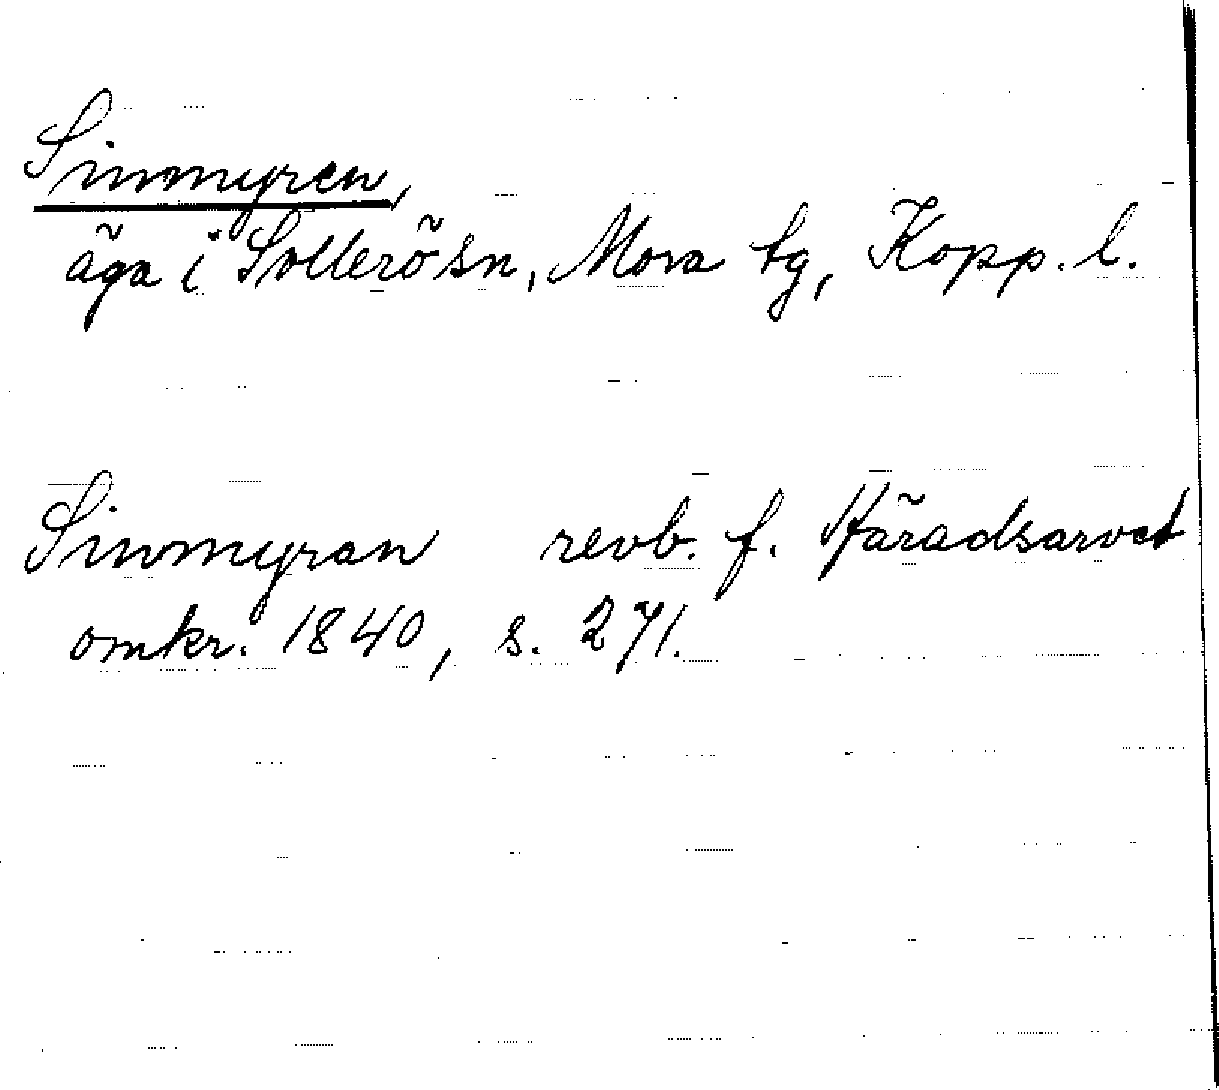 Sinmyren,
äga i Sollerö sn, Mora tg, Kopp. l.
Sinmyran revb. f. Häradsarvet
omkr. 1840, s. 271.